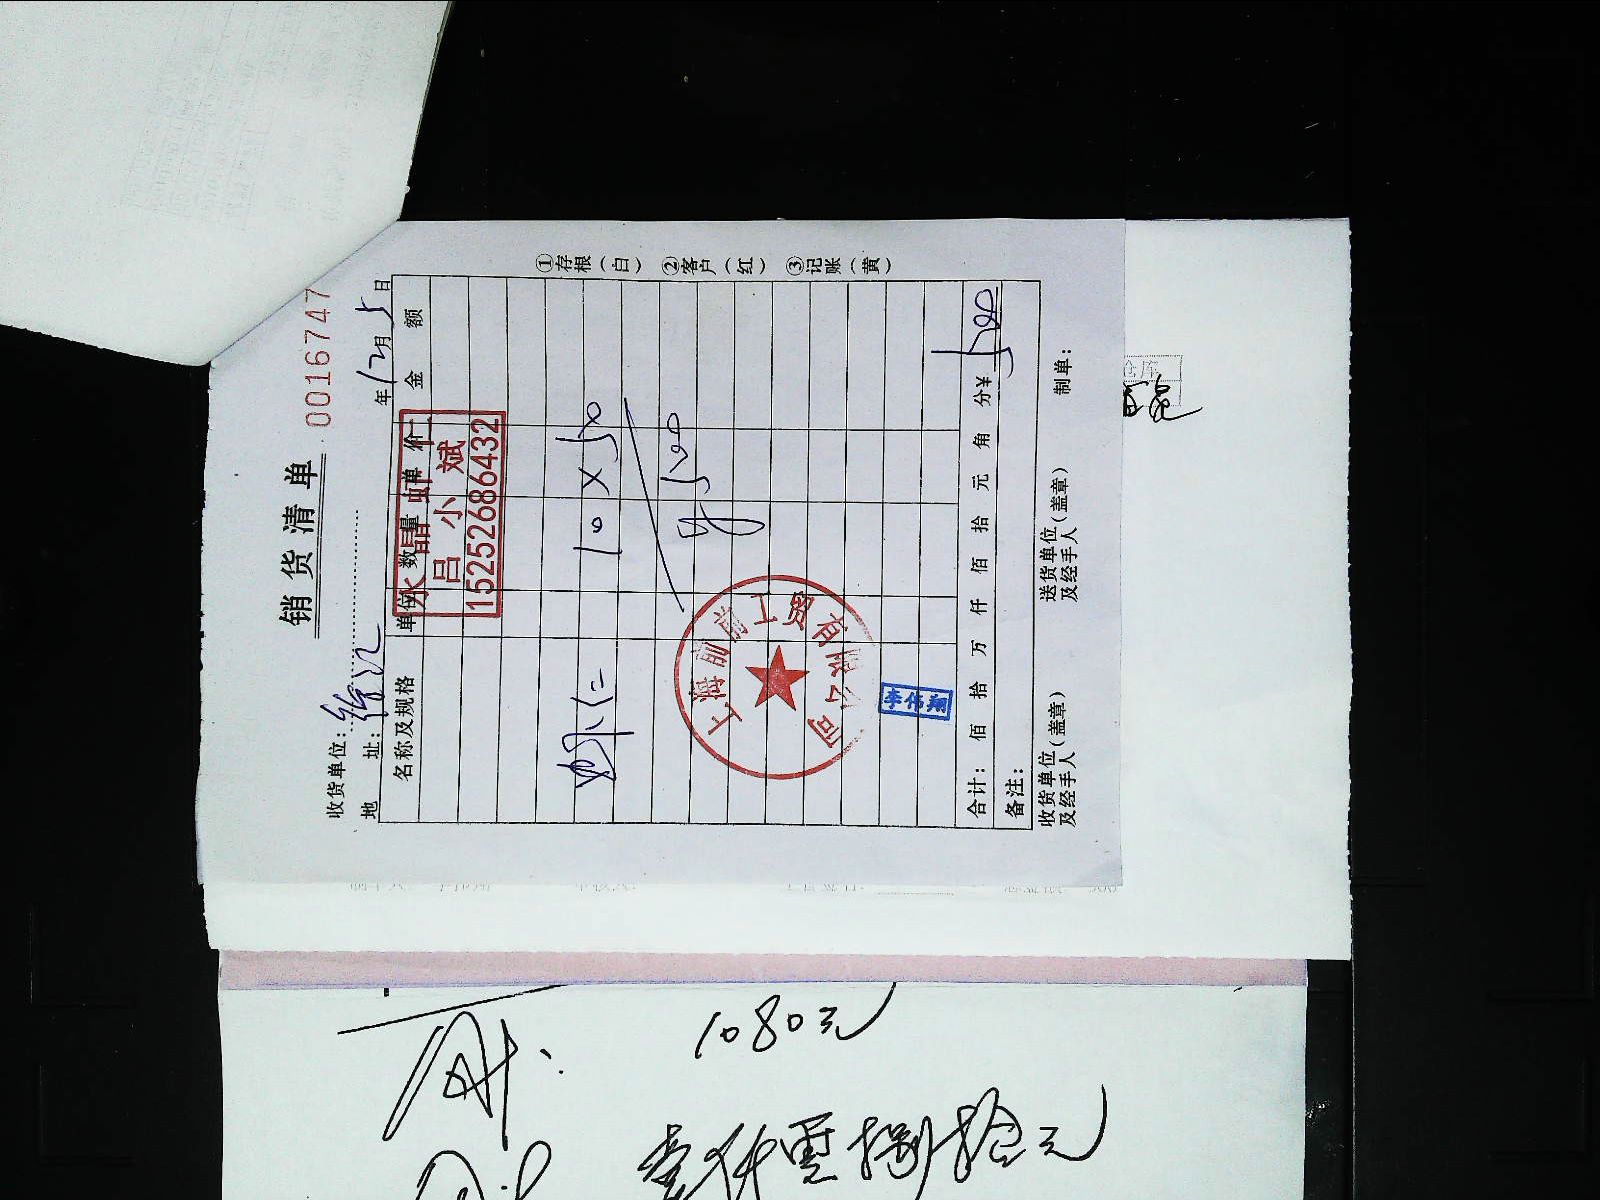 销货清单
0016747
收货单位:
地 址:
年12月5日
名称及规格 单位 数量 单价 金额
水晶虾仁
吕小斌
15252686432
虾仁 10×50
500
上海前前工贸有限公司
李伟翔
合计: 佰 拾 万 仟 佰 拾 元 角 分¥ 500
备注:
收货单位(盖章)
及经手人
送货单位(盖章)
及经手人
制单:
①存根(白) ②客户(红) ③记账(黄)
仓库
1080元
壹仟零捌拾元